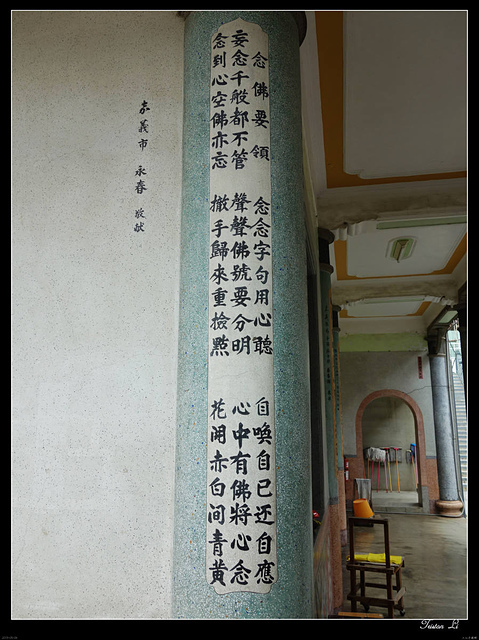 念佛要領 念念字句用心聽 自喚自己还自應
妄念千般都不管 聲聲佛號要分明 心中有佛將心念
念到心空佛亦忘 撤手歸來重撿點 花開赤白间青黃
嘉義市 永春 敬献
Tristan Li